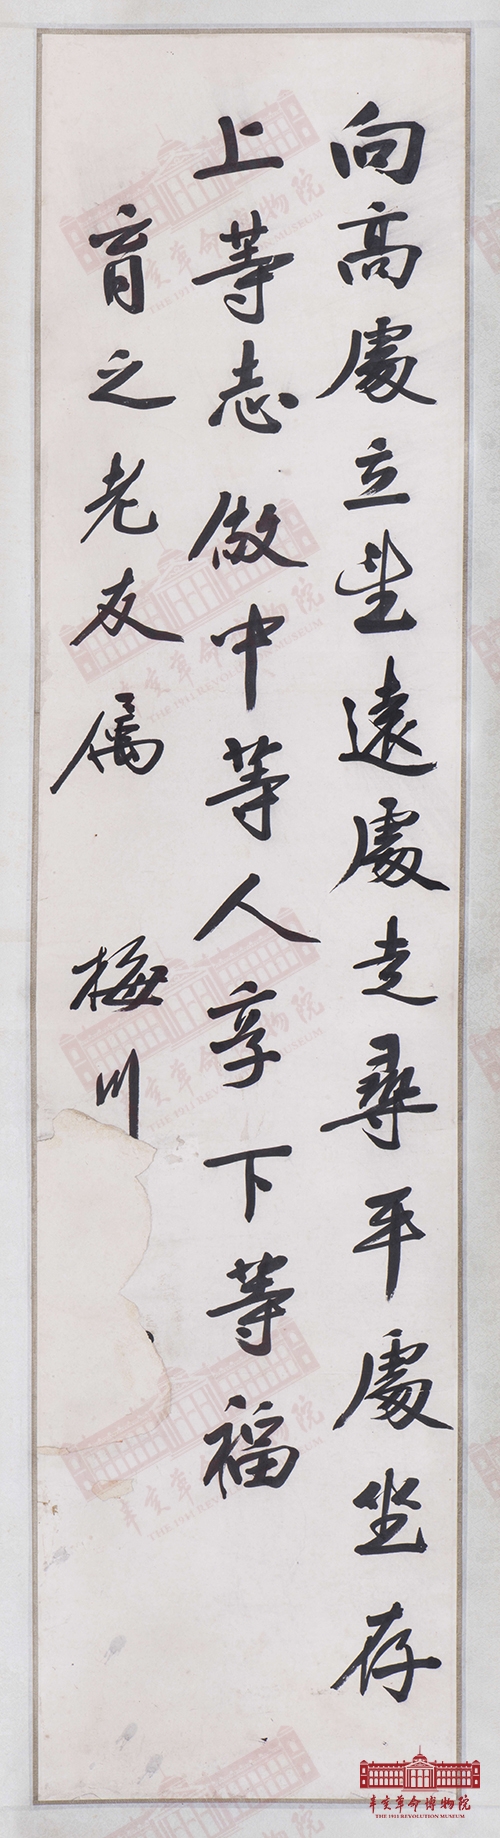 向高處立望遠處走尋平處坐存
上等志做中等人享下等福
育之老友属 梅川
辛亥革命博物院
THE 1911 REVOLUTION MUSEUM